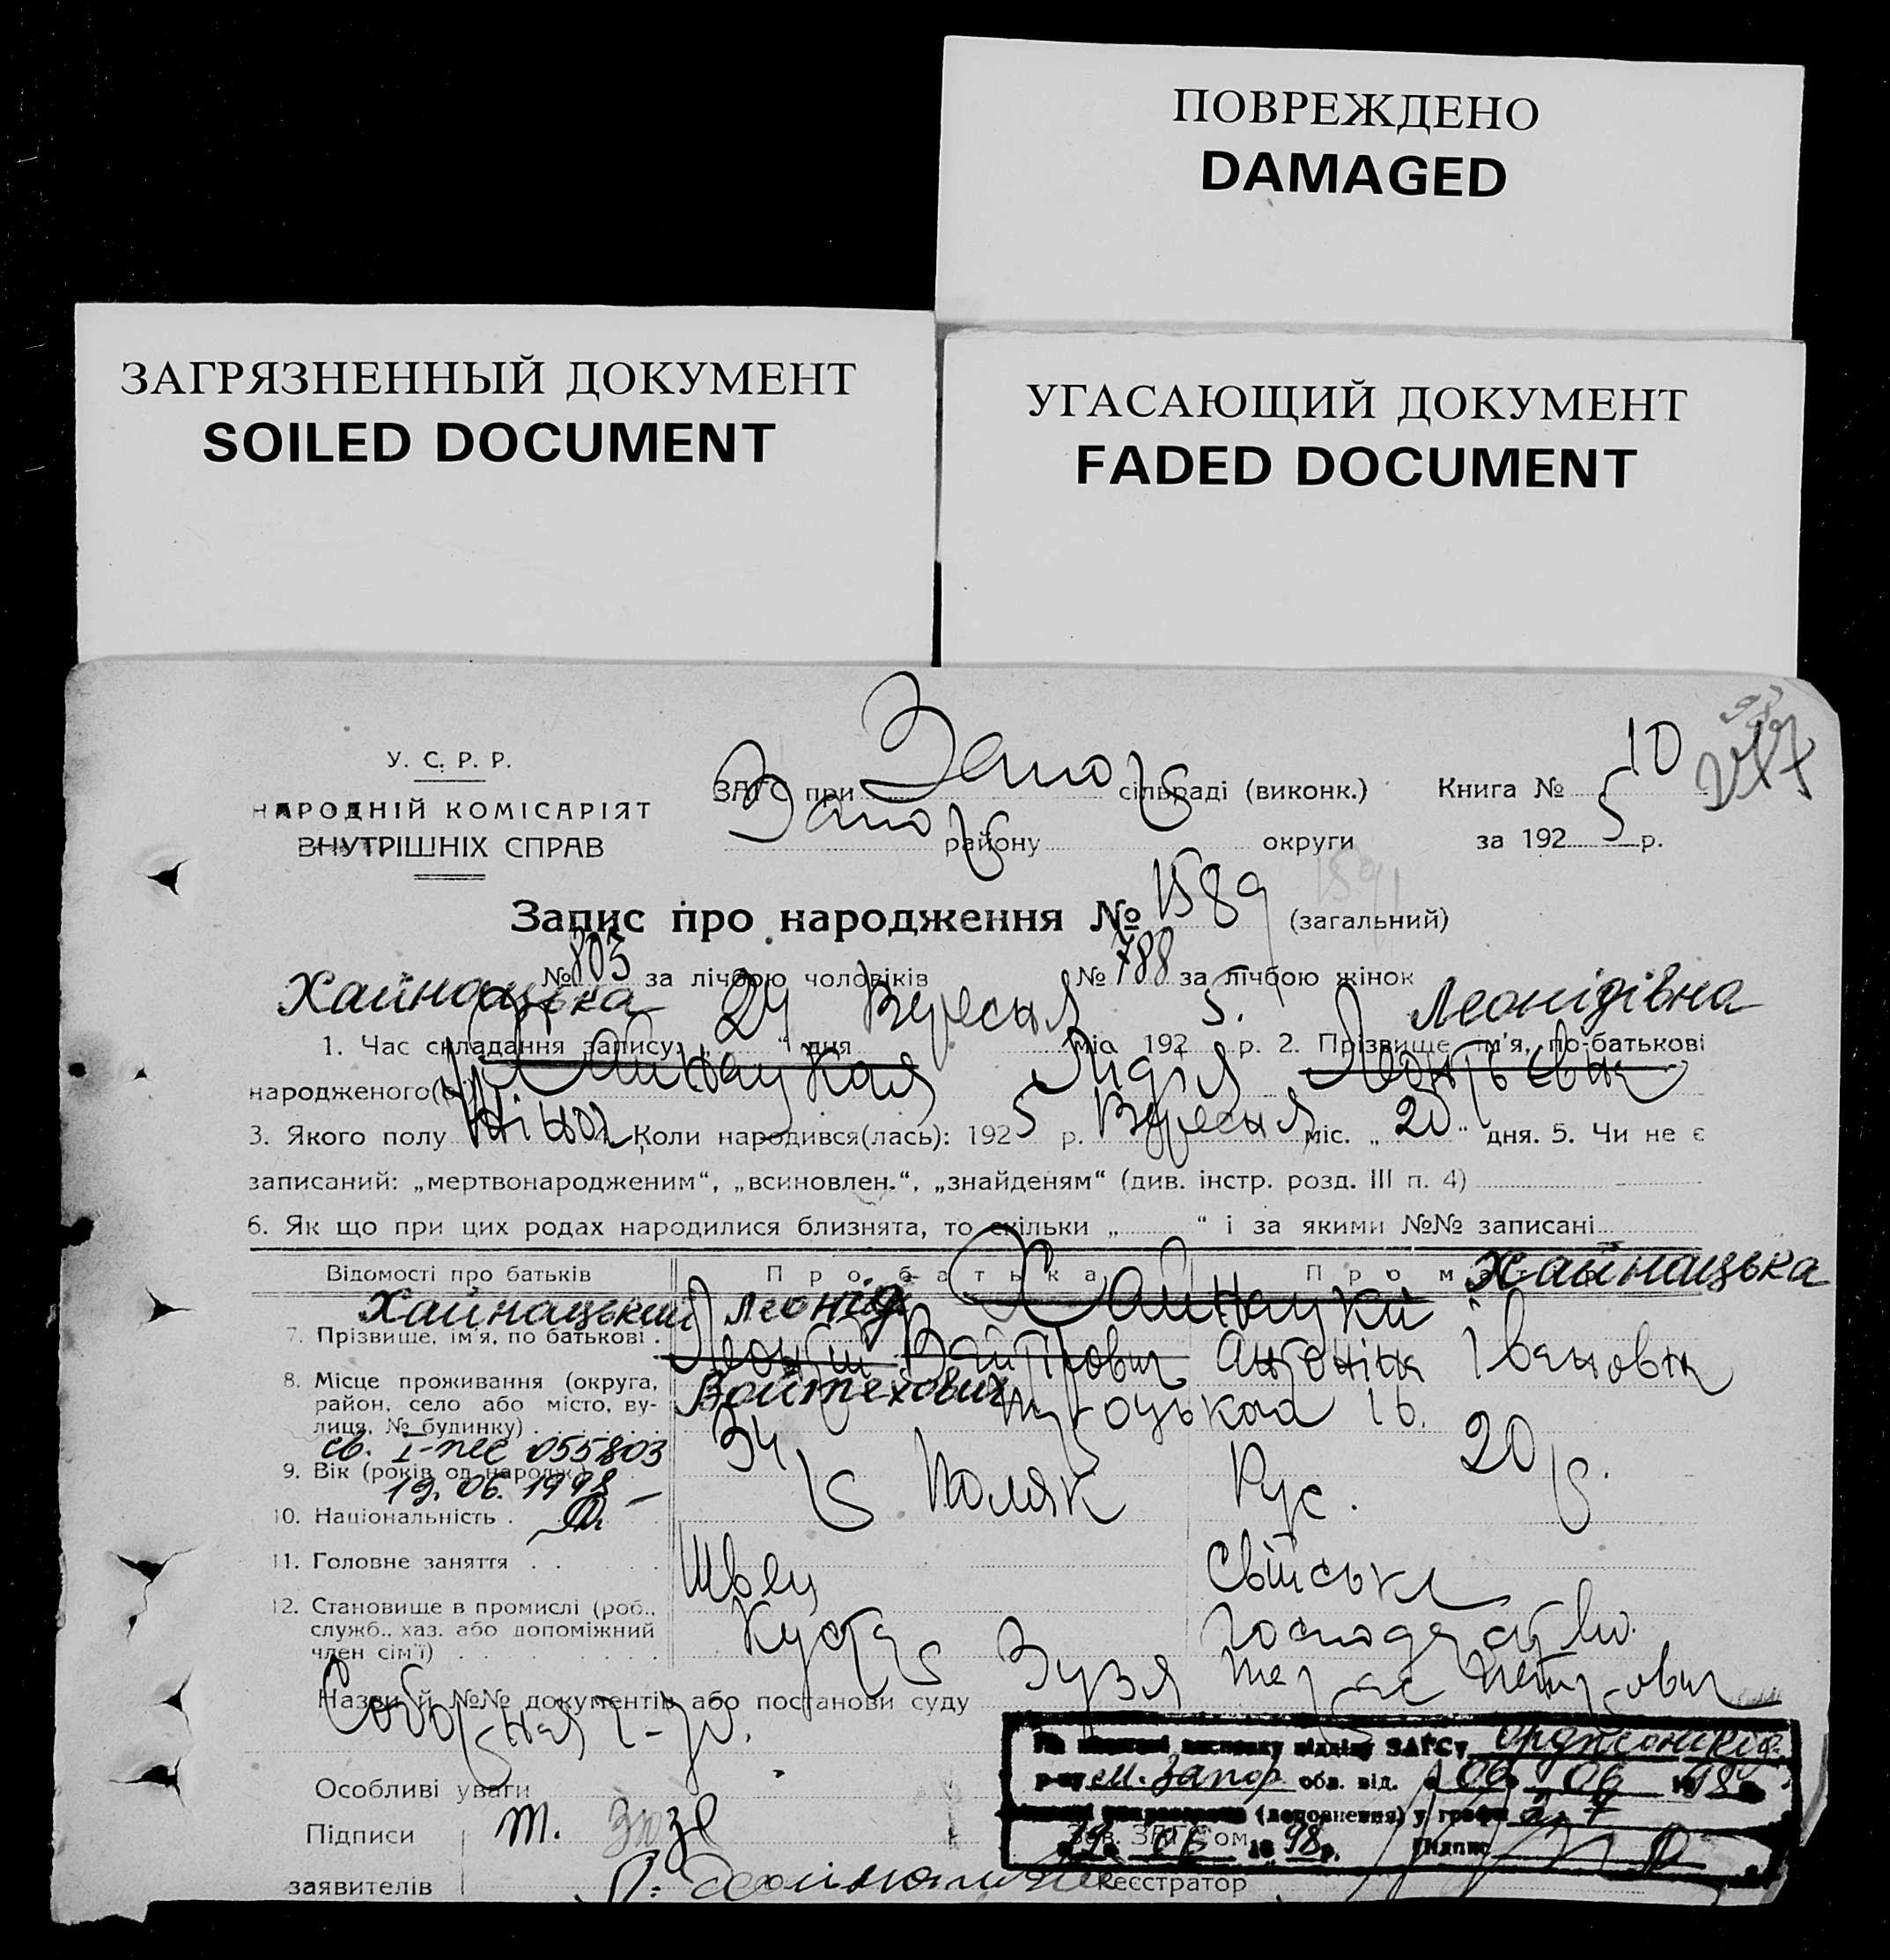 ПОВРЕЖДЕНО
DAMAGED
ЗАГРЯЗНЕННЫЙ ДОКУМЕНТ
SOILED DOCUMENT
УГАСАЮЩИЙ ДОКУМЕНТ
FADED DOCUMENT
У. С. Р. Р.
НАРОДНІЙ КОМІСАРІЯТ
ВНУТРІШНІХ СПРАВ
ЗАГС при Запор сільраді (виконк.) Книга № 10
Запор району округи за 1925 р.
Запис про народження № 1589 (загальний)
№ 803 за лічбою чоловіків № 788 за лічбою жінок
Хайнацька 24 Вересня 5. Леонідівна
1. Час складання запису: „ “ дня міс. 192 р. 2. Прізвище, ім'я, по-батькові
народженого(ої) Хайнацкая Лідія
3. Якого полу Жіноч 4. Коли народився(лась): 1925 р. Вересня міс. „20“ дня. 5. Чи не є
записаний: „мертвонародженим“, „всиновлен.“, „знайденям“ (див. інстр. розд. III п. 4)
6. Як що при цих родах народилися близнята, то скільки „ “ і за якими №№ записані
Відомості про батьків Про батька Про матір Хайнацька
Хайнацький Леонід Хайнацкий
7. Прізвище, ім'я, по батькові . Антоніна Івановна
Войтехович
8. Місце проживання (округа, район, село або місто, вулиця, № будинку) 16.
св. І-ЖС 055803
9. Вік (років од народж.) 34 р 20 р.
19. 06. 1998
10. Національність . Поляк Рус.
11. Головне заняття . . Швец Свійське
12. Становище в промислі (роб., служб., хаз. або допоміжний член сім'ї) Кустар господарство.
Назви й №№ документів або постанови суду Зузя Петрович
Соборная
Особливі уваги
Підписи
заявителів
ЗАГСу Орджонікід.
р-ну м. Запор. обл. від. 06 06 1998
(доповнення) у графи 2, 7
19 06 1998р. Підпис
Зав. ЗАГС'ом
Реєстратор